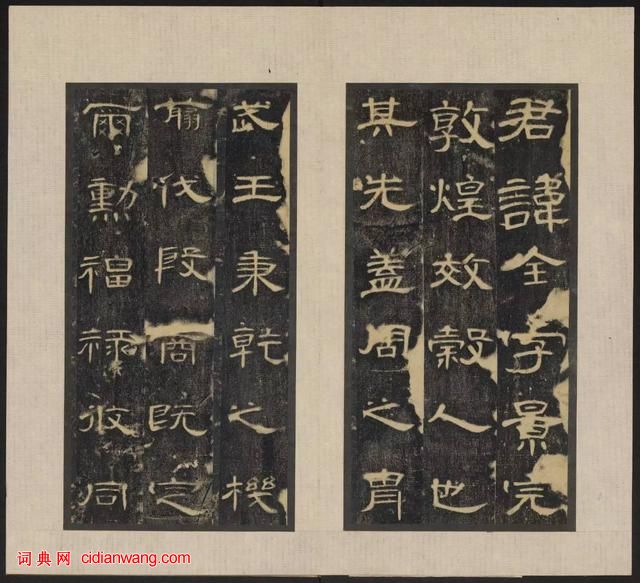 君諱全字景完
敦煌效穀人也
其先蓋周之胄
武王秉乾之機
翦伐殷商既定
爾勳福祿攸同
词典网 cidianwang.com